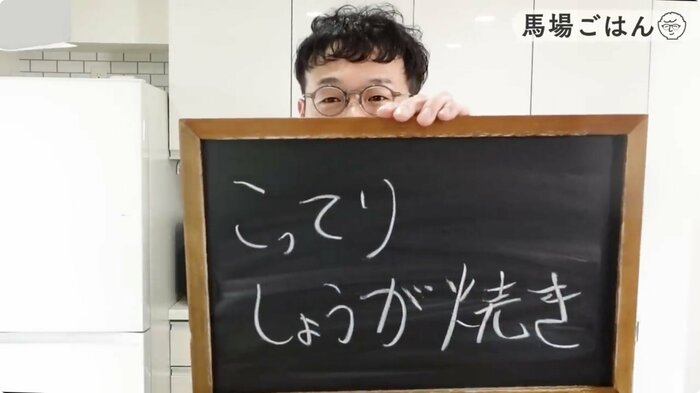 馬場ごはん
こってり
しょうが焼き